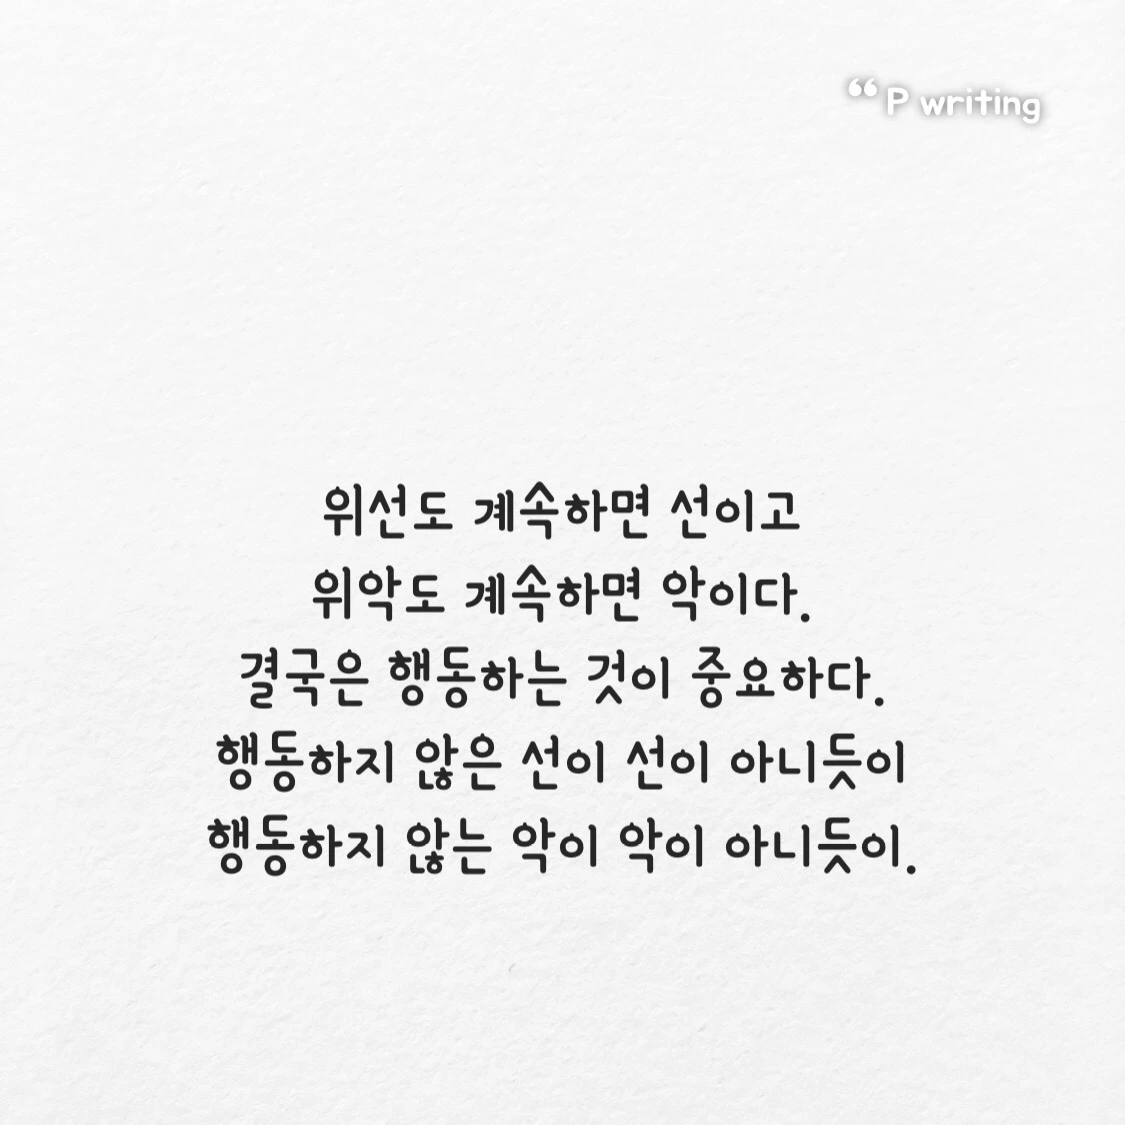 “ P writing
위선도 계속하면 선이고
위악도 계속하면 악이다.
결국은 행동하는 것이 중요하다.
행동하지 않은 선이 선이 아니듯이
행동하지 않는 악이 악이 아니듯이.